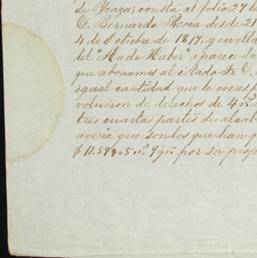 de Icaza; consta al folio 27
D. Bernardo Roca desde 21
4 de Octubre de 1817, y en ella
del "Ha de Haber" aparece da
que abonamos al citado Sr. D.
igual cantidad que le corresp
volucion de derechos de 4
tres cuartas partes de alcab
averia que son los que han q
$ 11.399 " 5 r. 9 gr. por su prop